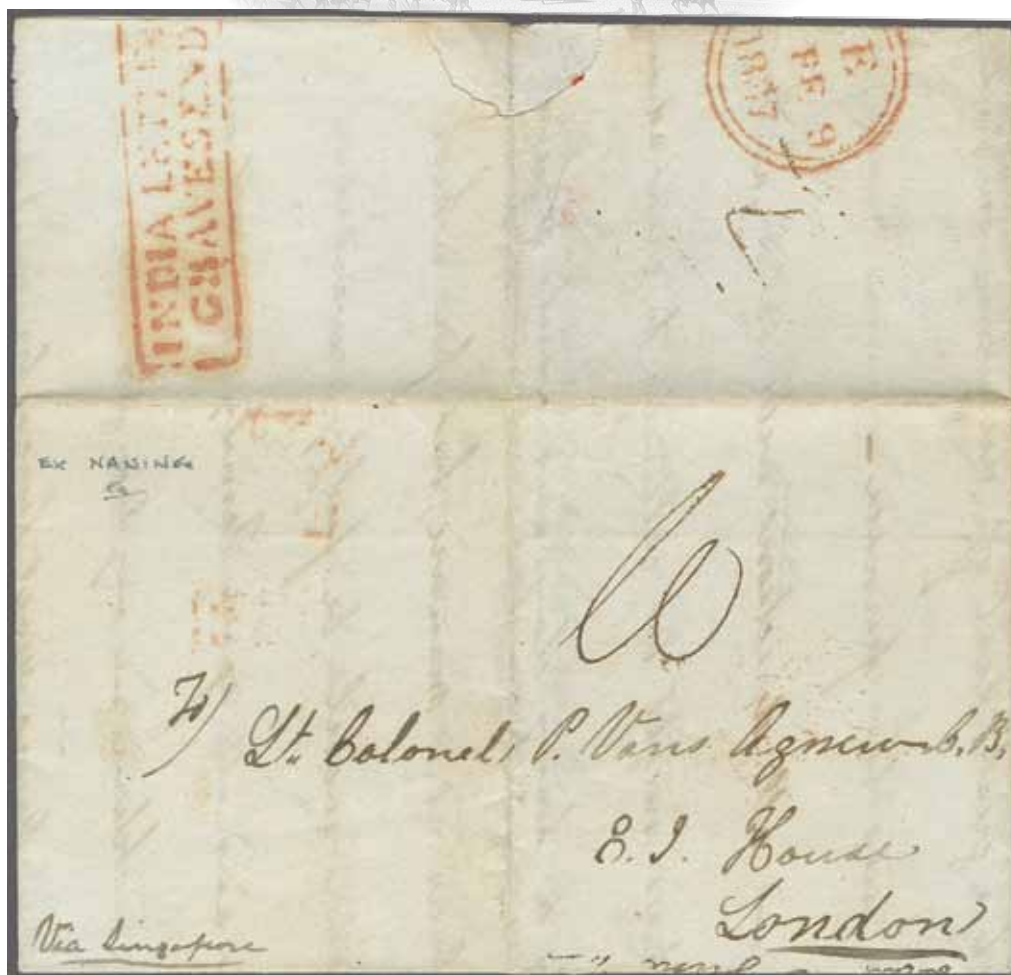 INDIA LETTER
GRAVESEND
E
FE 9
1837
EX NANING
Lt. Colonel P. Vans Agnew C.B.
E.I. House
London
Via Singapore